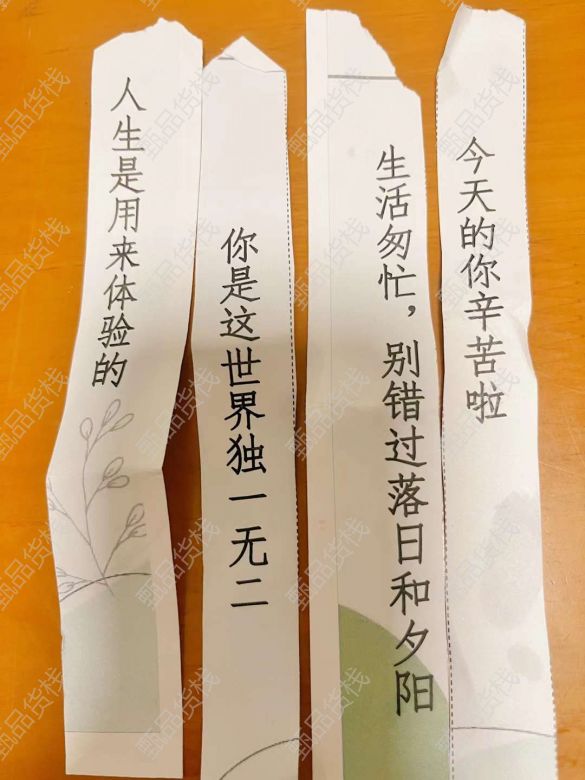 人生是用来体验的
你是这世界独一无二
生活匆忙，别错过落日和夕阳
今天的你辛苦啦
甄品货栈